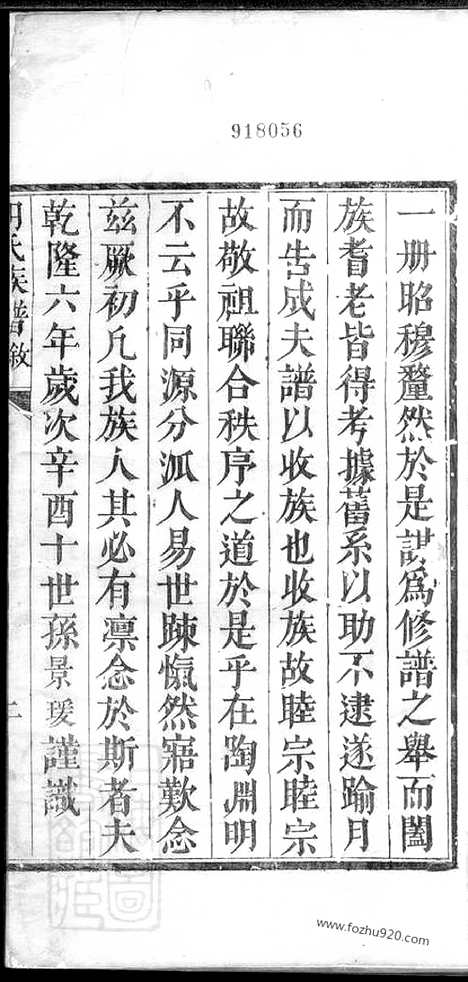 918056
一冊昭穆釐然於是謀為修譜之舉而闔
族耆老皆得考據舊系以助不逮遂踰月
而告成夫譜以收族也收族故睦宗睦宗
故敬祖聯合秩序之道於是乎在陶淵明
不云乎同源分派人易世踈愾然寤歎念
玆厥初凡我族人其必有凛念於斯者夫
乾隆六年歲次辛酉十世孫景瑗謹識
氏族譜敘
二
www.fozhu920.com